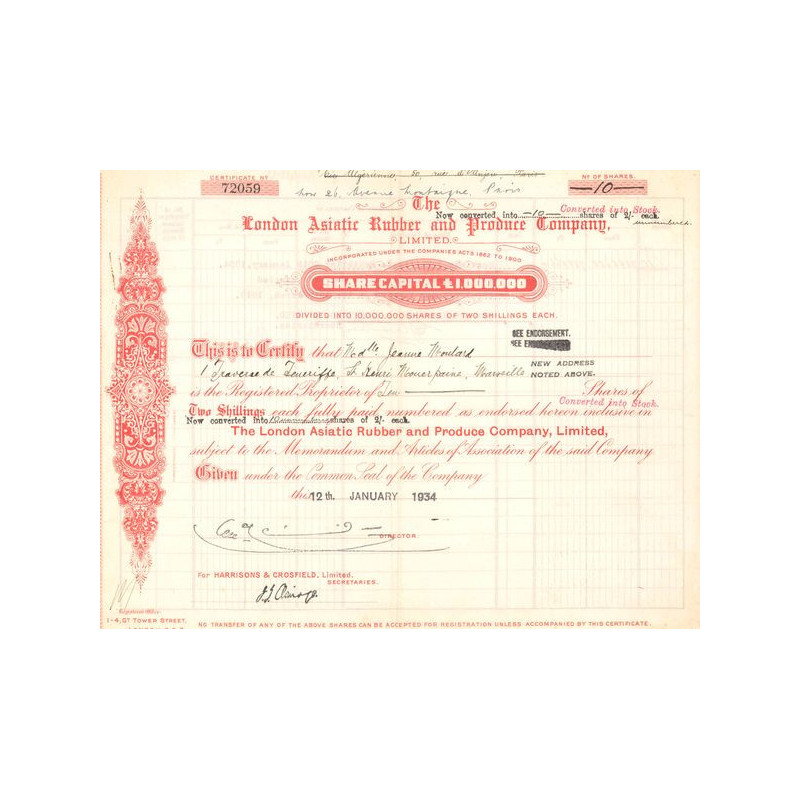 CERTIFICATE Nº
72059
Nº OF SHARES.
—10—
now 26, Avenue Montaigne, Paris
The
Converted into Stock.
Now converted into —10— shares of 2/- each.
unnumbered.
London Asiatic Rubber and Produce Company,
LIMITED.
INCORPORATED UNDER THE COMPANIES ACTS 1862 TO 1900
SHARE CAPITAL £1,000,000
DIVIDED INTO 10,000,000 SHARES OF TWO SHILLINGS EACH.
SEE ENDORSEMENT.
This is to Certify that Mdlle Jeanne Moulard
NEW ADDRESS
1 Traverse de Teneriffe, St Henri Marseille
NOTED ABOVE.
is the Registered Proprietor of Ten Shares of
Converted into Stock.
Two Shillings each fully paid numbered as endorsed hereon inclusive in
Now converted into shares of 2/- each.
The London Asiatic Rubber and Produce Company, Limited,
subject to the Memorandum and Articles of Association of the said Company
Given under the Common Seal of the Company
this 12th. JANUARY 1934
DIRECTOR.
For HARRISONS & CROSFIELD, Limited.
SECRETARIES.
Registered Office.
1-4, GT TOWER STREET,
NO TRANSFER OF ANY OF THE ABOVE SHARES CAN BE ACCEPTED FOR REGISTRATION UNLESS ACCOMPANIED BY THIS CERTIFICATE.